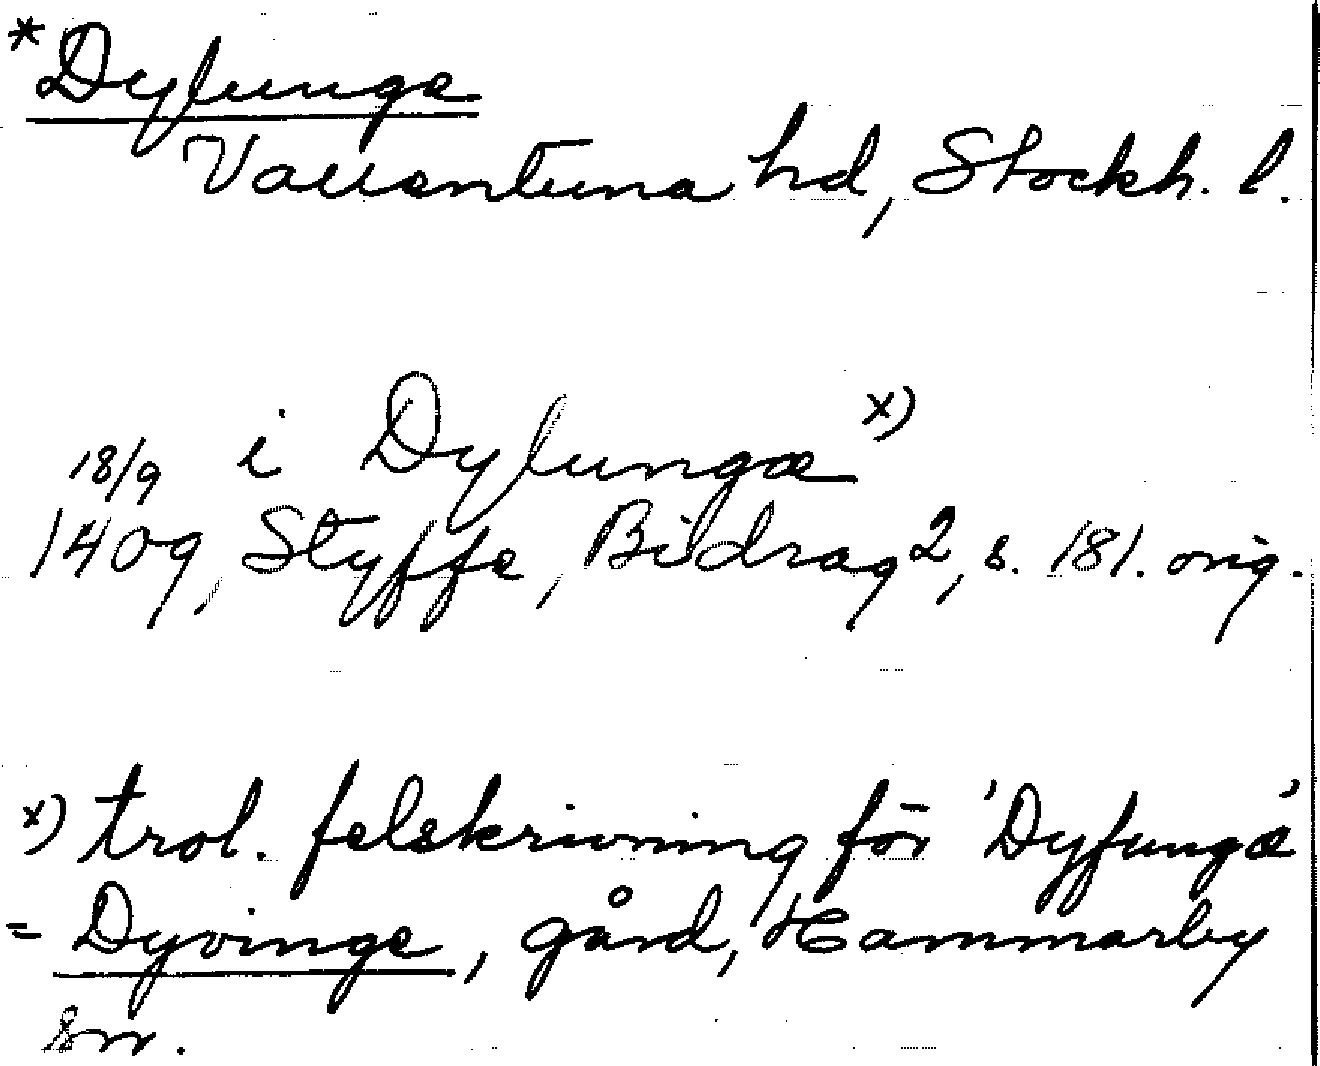 *Dylunge
Vallentuna hd, Stockh. l.
18/9 i Dylungæ x)
1409, Styffe, Bidrag 2, s. 181. orig.
x) trol. felskrivning för 'Dyfungæ'
= Dyvinge, gård, Hammarby
sn.